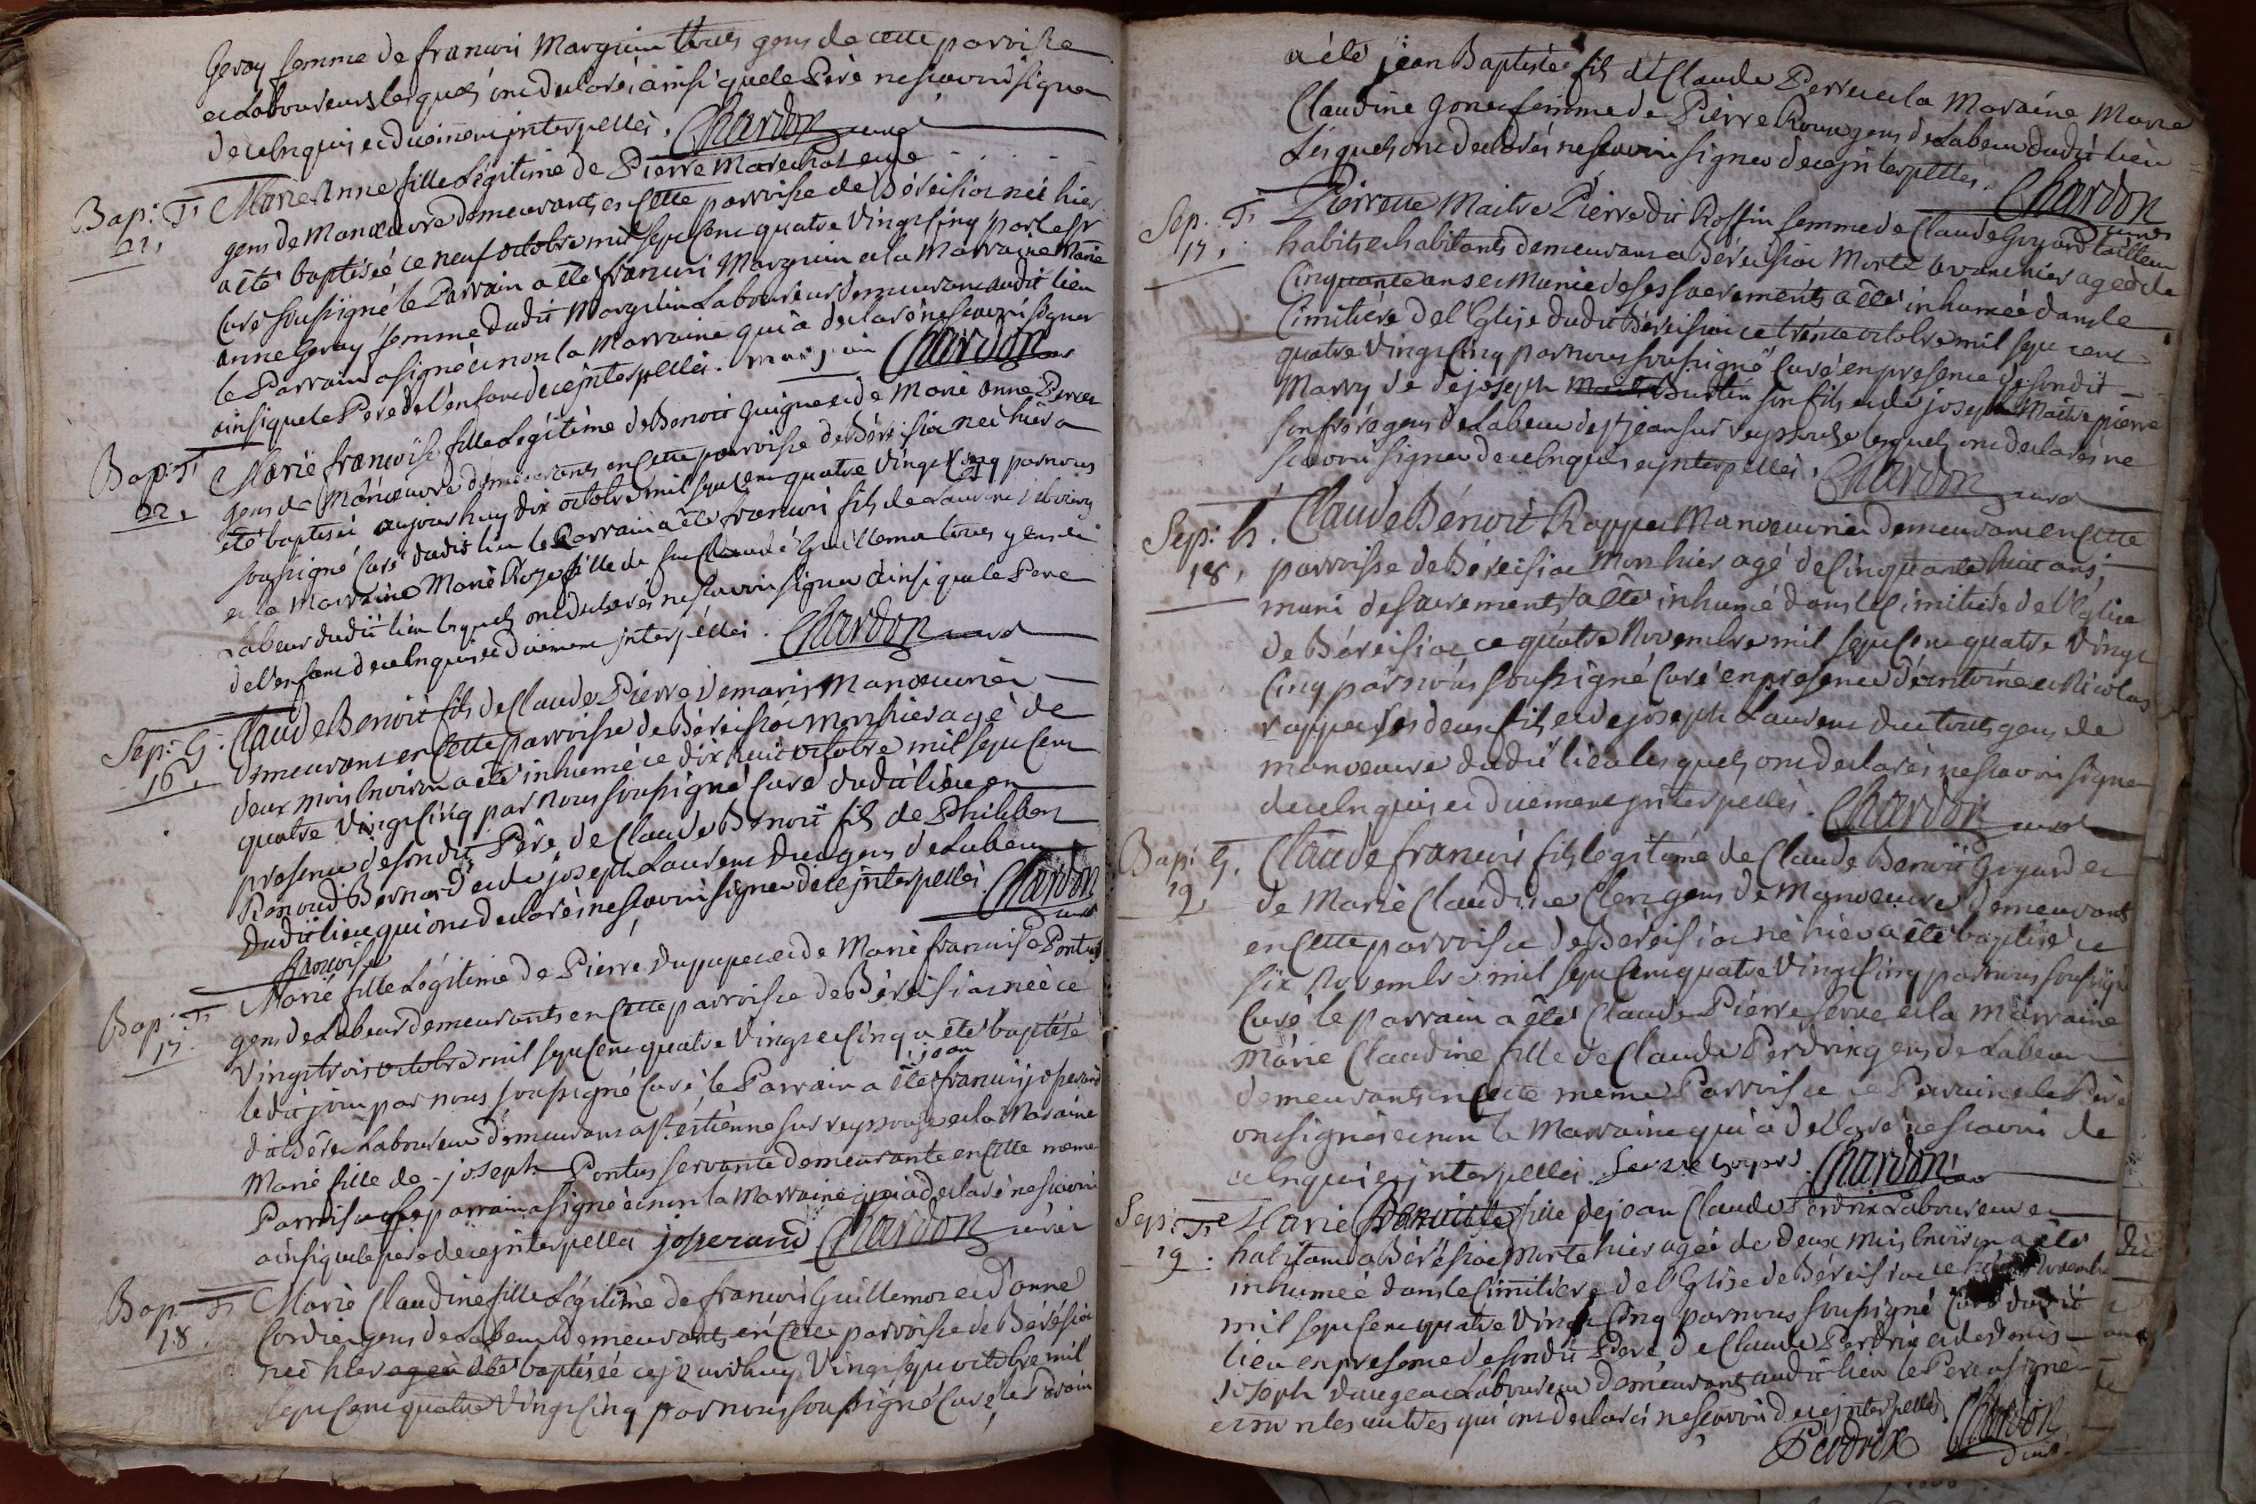 Geray femme de francois Marguin tous gens de cette parroisse
et Laboureurs lesquels ont declarés ainsi que le Père nescavoir signer
de ce Enquis et duement jnterpellés. Chardon curé
Bap: F. 21. Marie Anne fille Légitime de Pierre Marechal et de
gens de Manœuvre demeurants en Cette parroisse de Béréisiat née hier
a été baptisée ce neuf octobre mil sept Cent quatre Vingt Cinq par le sr
Curé soussigné le Parrain a été francois Marguin et la Marraine Marie
anne Geray femme dudit Marguin Laboureur demeurant audit lieu
le Parrain a signé et non la Marraine qui a declaré nescavoir signer
ainsi que le Pere de l'enfant de ce jnterpellés. marguin Chardon curé
Bap: F. 22. Marie francoise fille Légitime de Benoit Guigue et de Marie Anne Perret
gens de Manœuvre demeurants en Cette parroisse de Béréisiat née hier a
été baptisée aujourhuy dix octobre mil sept Cent quatre Vingt Cinq par nous
soussigné Curé dudit lieu le Parrain a été francois fils de Laurent
et la Marraine Marie Roze fille de feu Claude Guillemot tous gens de
Labeur dudit lieu lesquels ont declarés nescavoir signer ainsi que le Pere
de l'enfant de ce Enquis et duement jnterpellés. Chardon curé
Sep: G. 16. Claude Benoit fils de Claude Pierre Demaris Manœuvrier
demeurant en Cette parroisse de Béréisiat Mort hier agé de
deux mois Environ a été inhumé ce dix huit octobre mil sept Cent
quatre Vingt Cinq par Nous soussigné Curé dudit lieu en
presence de sondit Père de Claude Benoit fils de Philibert
Renoud Bernard et de joseph Laurent Duc gens de Labeur
dudit lieu qui ont declarés nescavoir signer de ce jnterpellés Chardon curé
francoise
Bap: F. 17. Marie fille Légitime de Pierre Dupupet et de Marie francoise Pontus
gens de Labeur demeurants en Cette parroisse de Béréisiat née ce
Vingt trois octobre mil sept Cent quatre Vingt et Cinq a été baptisée
jean
ledit jour par nous soussigné Curé, le Parrain a été francois josserand
dit Laboureur demeurant a st. étienne sur reyssouze et la Maraine
Marie fille de joseph Pontus servante demeurante en Cette meme
Parroisse le parrain a signé et non la Marraine qui a declaré nescavoir
ainsi que le père de ce jnterpellés josserand Chardon curé
Bap: F. 18. Marie Claudine fille Légitime de francois Guillemot et d'anne
Cordier gens de Labeur demeurants en Cette parroisse de Béréisiat
née hier a été baptisée cejourdhuy Vingt sept octobre mil
sept Cent quatre Vingt Cinq par nous soussigné Curé, le Parrain
a été jean Baptiste fils de Claude Perret et la Maraine Marie
Claudine Gonet femme de Pierre Roux gens de Labeur dudit lieu
Lesquels ont declarés nescavoir signer de ce jnterpellés. Chardon curé
Sep. F. 17. Pierrette Maitre Pierre dit Roffin femme de Claude Goyard tailleur
habits et habitants demeurants a Béréisiat Morte avant hier agée de
Cinquante ans et Munie de ses sacrements a été inhumée dans le
Cimitière de l'Eglise dudit Béréisiat ce trente octobre mil sept cent
quatre Vingt Cinq par nous soussigné Curé en presence de sondit
Marry de de joseph Burtin son fils et de joseph Maitre pierre
son frére gens de Labeur de st jean sur reyssouze lesquels ont declarés ne
scavoir signer de ce Enquis et jnterpellés. Chardon curé
Sep: h. 18. Claude Bénoit Rappet Manoeuvrier demeurant en Cette
parroisse de Béréisiat Mort hier agé de Cinquante huit ans,
muni de sacrements a été inhumé dans le Cimitière de l'Eglise
de Béréisiat ce quatre Novembre mil sept Cent quatre Vingt
Cinq par nous soussigné Curé en presence d'antoine et Nicolas
rappet ses deux fils et de joseph Laurent duc touts gens de
manoeuvre dudit lieu lesquels ont declarés nescavoir signer
de ce Enquis et duement jnterpellés. Chardon curé
Bap: G. 19. Claude francois fils legitime de Claude Benoit Goyard et
de Marie Claudine Clerc gens de Manoeuvre demeurants
en Cette parroisse de Béréisiat né hier a été baptisé ce
six Novembre mil sept Cent quatre Vingt Cinq par nous soussigné
Curé le parrain a été Claude Pierre Serve et la Marraine
Marie Claudine fille de Claude Perdrix gens de Labeur
demeurants en Cette meme Parroisse le Parrain et le Père
ont signés et non la Marraine qui a declaré nescavoir de
ce Enquis et jnterpellés. Serve Goyard Chardon curé
Sep: F. 19. Marie fille de jean Claude Perdrix Laboureur et
habitant a Béréisiat Morte hier agée de deux mois Environ a été
inhumée dans le Cimitière de l'Eglise de Béréisiat ce Novembre
mil sept Cent quatre Vingt Cinq par nous soussigné Curé dudit
lieu en presence de sondit Pere de Claude Perdrix et de denis
joseph Laboureur demeurants audit lieu le Pere a signé
et non les autres qui ont declarés nescavoir de ce jnterpellés
Perdrix Chardon curé